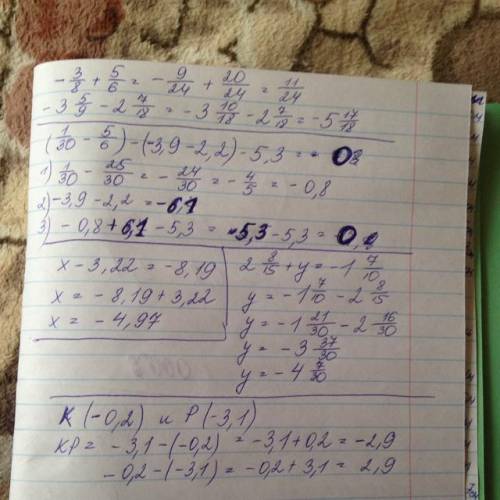 -3/8 + 5/6 = -9/24 + 20/24 = 11/24
-3 5/9 - 2 7/18 = -3 10/18 - 2 7/18 = -5 17/18
(1/30 - 5/6) - (-3,9 - 2,2) - 5,3 = 0
1) 1/30 - 25/30 = -24/30 = -4/5 = -0,8
2) -3,9 - 2,2 = -6,1
3) -0,8 + 6,1 - 5,3 = 5,3 - 5,3 = 0
x - 3,22 = -8,19
x = -8,19 + 3,22
x = -4,97
2 8/15 + y = -1 7/10
y = -1 7/10 - 2 8/15
y = -1 21/30 - 2 16/30
y = -3 37/30
y = -4 7/30
К (-0,2) и Р (-3,1)
КР = -3,1 - (-0,2) = -3,1 + 0,2 = -2,9
-0,2 - (-3,1) = -0,2 + 3,1 = 2,9